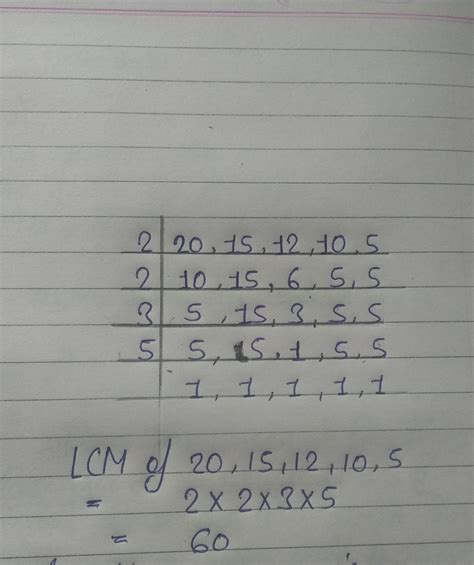 2 | 20, 15, 12, 10, 5
2 | 10, 15, 6, 5, 5
3 | 5, 15, 3, 5, 5
5 | 5, 5, 1, 5, 5
1, 1, 1, 1, 1
LCM of 20, 15, 12, 10, 5
= 2 x 2 x 3 x 5
= 60